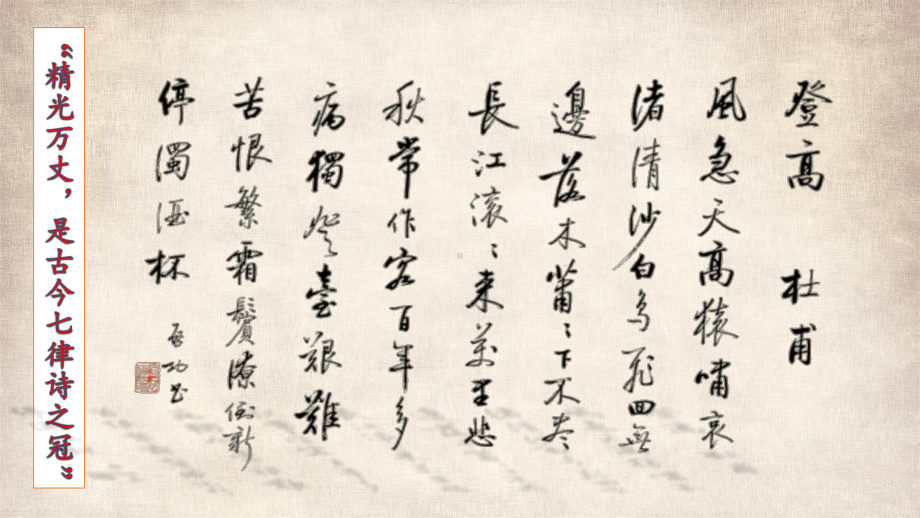 登高 杜甫
風急天高猿嘯哀
渚清沙白鸟飛回無
邊落木蕭〻下不尽
長江滚〻来萬里悲
秋常作客百年多
病獨登臺艱難
苦恨繁霜鬢潦倒新
停濁酒杯
启功书
“精光万丈，是古今七律诗之冠”